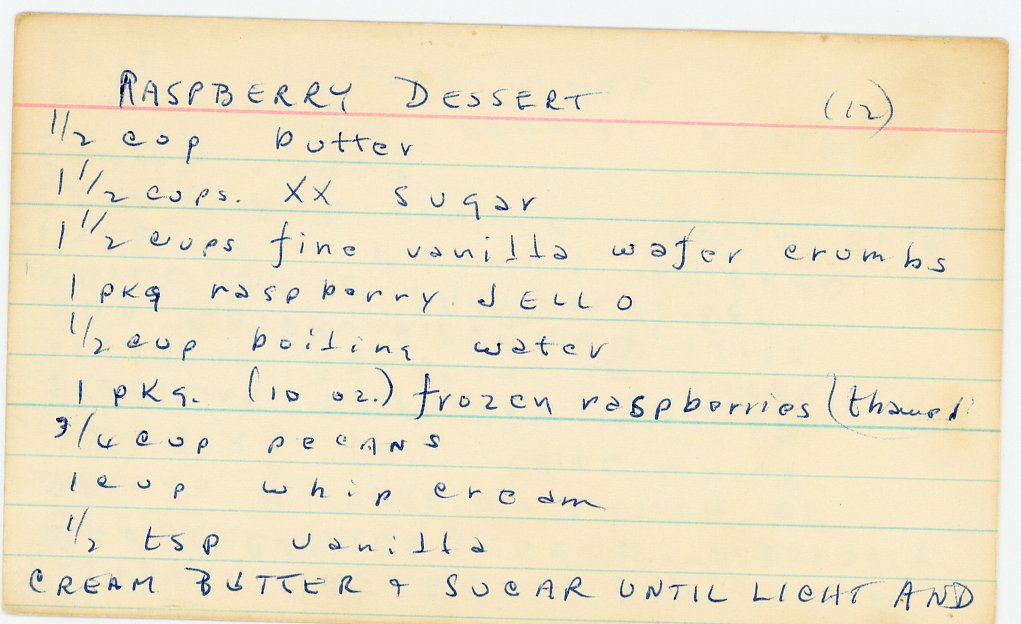 RASPBERRY DESSERT (12)
1/2 cup butter
1 1/2 cups. XX sugar
1 1/2 cups fine vanilla wafer crumbs
1 pkg raspberry JELLO
1/2 cup boiling water
1 pkg. (10 oz.) frozen raspberries (thawed
3/4 cup pecANs
1 cup whip cream
1/2 tsp vanilla
CREAM BUTTER + SUGAR UNTIL LIGHT AND